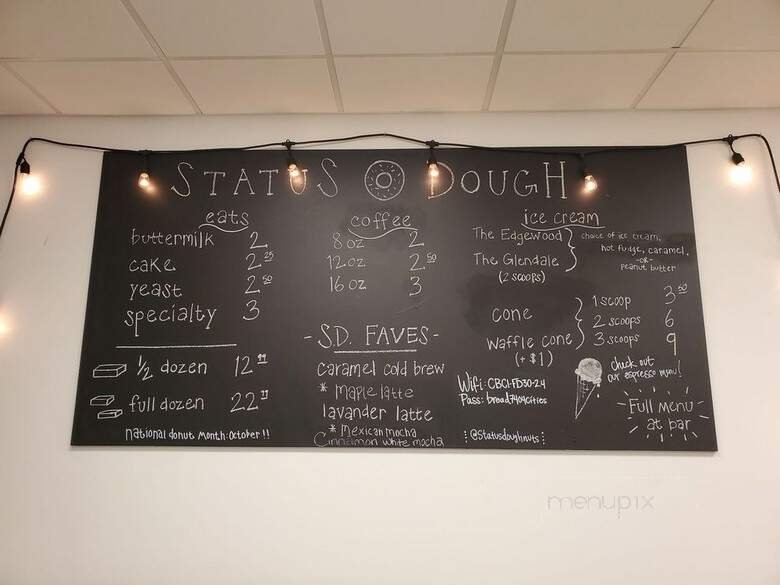 STATUS DOUGH
eats
buttermilk 2
cake 2 25
yeast 2 50
specialty 3
1/2 dozen 12 99
full dozen 22
national donut month: october!!
coffee
8 oz 2
12 oz 2 50
16 oz 3
- S.D. FAVES -
caramel cold brew
* maple latte
lavander latte
* mexican mocha
Cinnamon white mocha
ice cream
The Edgewood
The Glendale
(2 scoops)
choice of ice cream,
hot fudge, caramel,
-or-
peanut butter
cone
waffle cone
(+ $1)
1 scoop 3 50
2 scoops 6
3 scoops 9
Wifi: CBCI-FD30-24
Pass: bread7404cities
check out
our espresso menu!
Full menu
at bar
@statusdoughnuts
menupix